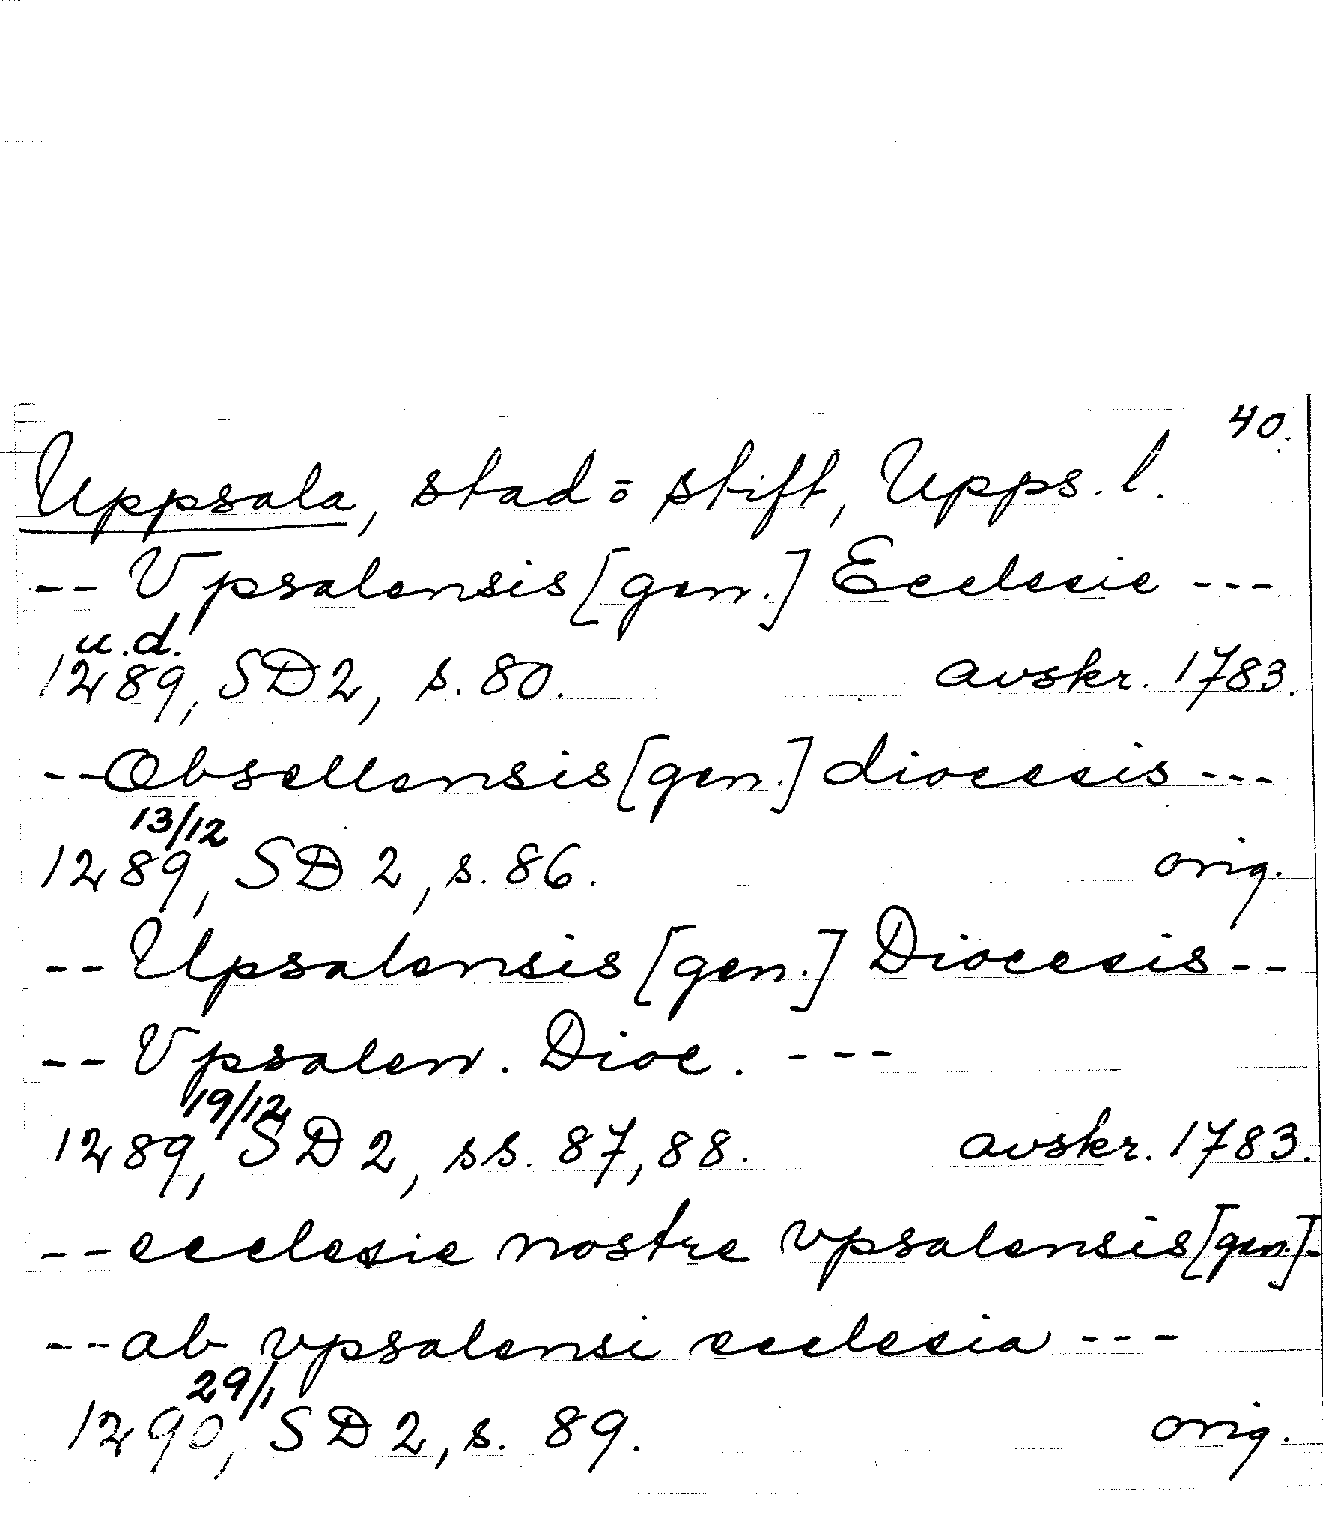 40.
Uppsala, stad o stift, Upps. l.
-- Vpsalensis [gen.] Ecclesie ---
u.d.
1289, SD 2, s. 80. avskr. 1783.
-- Obsellensis [gen.] diocesis ---
13/12
1289, SD 2, s. 86. orig.
-- Upsalensis [gen.] Diocesis --
-- Vpsalen. Dioc. ---
19/12
1289, SD 2, ss. 87, 88. avskr. 1783.
-- ecclesie nostre vpsalensis [gen.] -
-- ab vpsalensi ecclesia ---
29/1
1290, SD 2, s. 89. orig.